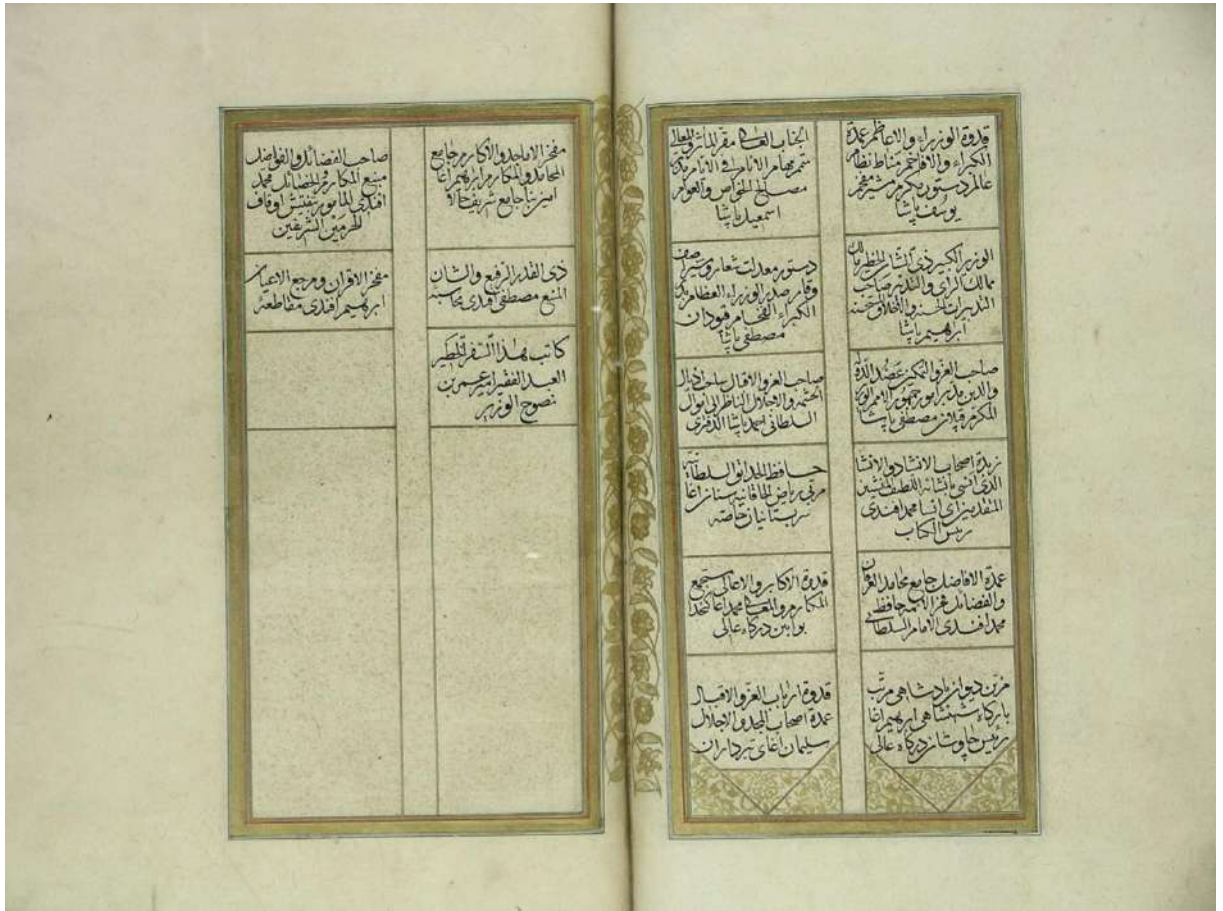 قدوة الوزراء والاعاظم عمدة
الكبراء والافاخم مناط نظام
عالم دستور مكرم مشير مفخم
يوسف پاشا
الوزير الكبير ذى الشان الخطير مالك
ممالك الراى والتدبير صاحب
التدبيرات الحسنه والاخلاق المستحسنه
ابرهيم پاشا
صاحب العز والتمكين عضد الدولة
والدين مدبر امور جمهور الامم الوزير
المكرم قپلان مصطفى پاشا
زبدة اصحاب الانشاد والانشا
الذى انسى بانشائه اللطيف المنشين
المتقدمين اى انسا محمد افندى
رئيس الكتاب
عمدة الافاضل جامع محامد العرفان
والفضائل فخر الائمه حافظ
محمد افندى الامام السلطانى
مزين ديوان پادشاهى مرتب
باركاه شهنشاهى ابرهيم اغا
رئيس چاوشان دركاه عالى
الجناب العالى مقر المآثر والمعالى
متمم مهام الانام فى الايام مدبر
مصالح الخواص والعوام
اسمعيل پاشا
دستور معدلت شعار ومشير آصف
وقار صدر الوزراء العظام بدر
الكبراء الفخام قپودان
مصطفى پاشا
صاحب العز والاقبال ساحب اذيال
الحشمه والاجلال الناظر الى اموال
السلطانى احمد پاشا الدفترى
حافظ الحدايق السلطانيه
مربى رياض الخاقانيه سنان اغا
سربستانيان خاصه
قدوة الاكابر والاعالى مستجمع
المكارم والمعالى محمد اغا كتخدا
بوابين دركاه عالى
قدوة ارباب العز والاقبال
عمدة اصحاب المجد والاجلال
سليمان اغاى تبرداران
مفخر الاماجد والاكارم جامع
المحامد والمكارم ابرهيم اغا
امين بنا جامع شريف حالا
ذى القدر الرفيع والشان
المنيع مصطفى افندى محاسبه
كاتب هذا السفر الخطير
العبد الفقير امير عمر بن
نصوح الوزير
صاحب الفضائل والفواضل
منبع المكارم والخصائل محمد
افندى المامور بتفتيش اوقاف
الحرمين الشريفين
مفخر الاقران ومرجع الاعيان
ابرهيم افندى مقاطعه